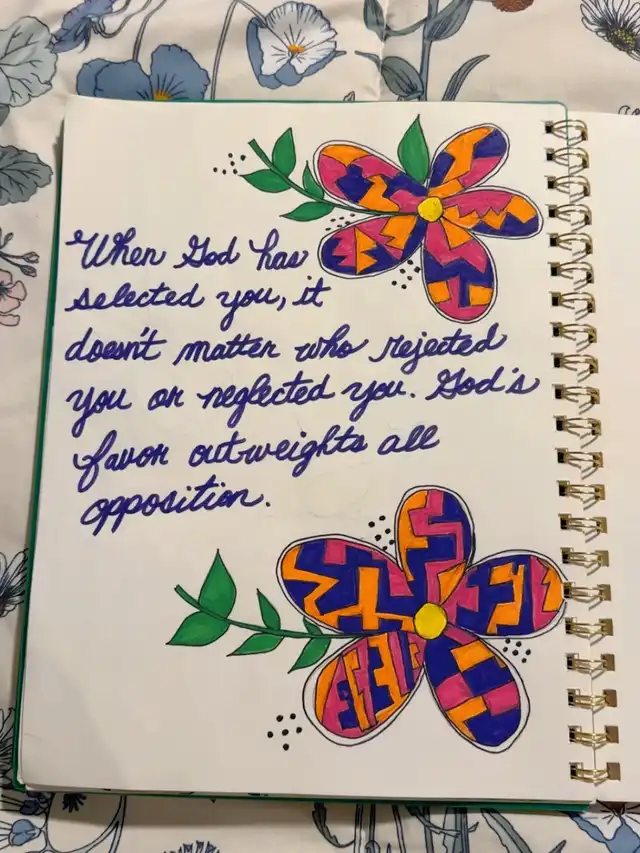 When God has
selected you, it
doesn't matter who rejected
you or neglected you. God's
favor outweights all
opposition.